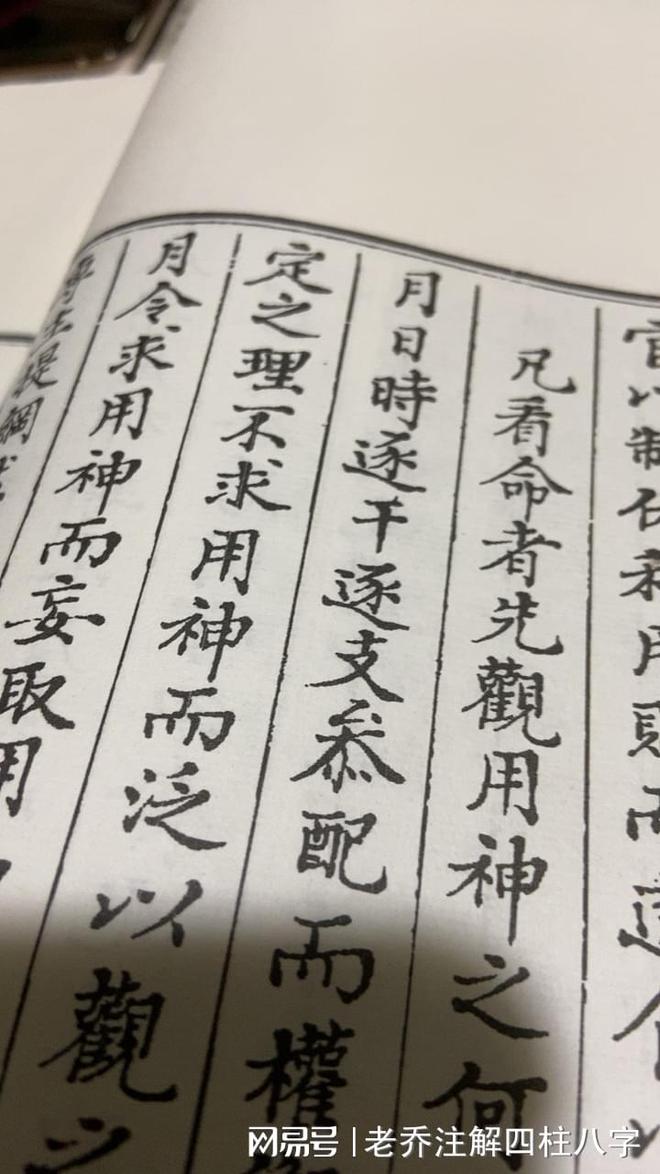 官以制
用
而
凡看命者先觀用神之何
月日時逐干逐支叅配而權
定之理不求用神而泛以觀之
月令求用神而妄取用
提綱
网易号 | 老乔注解四柱八字